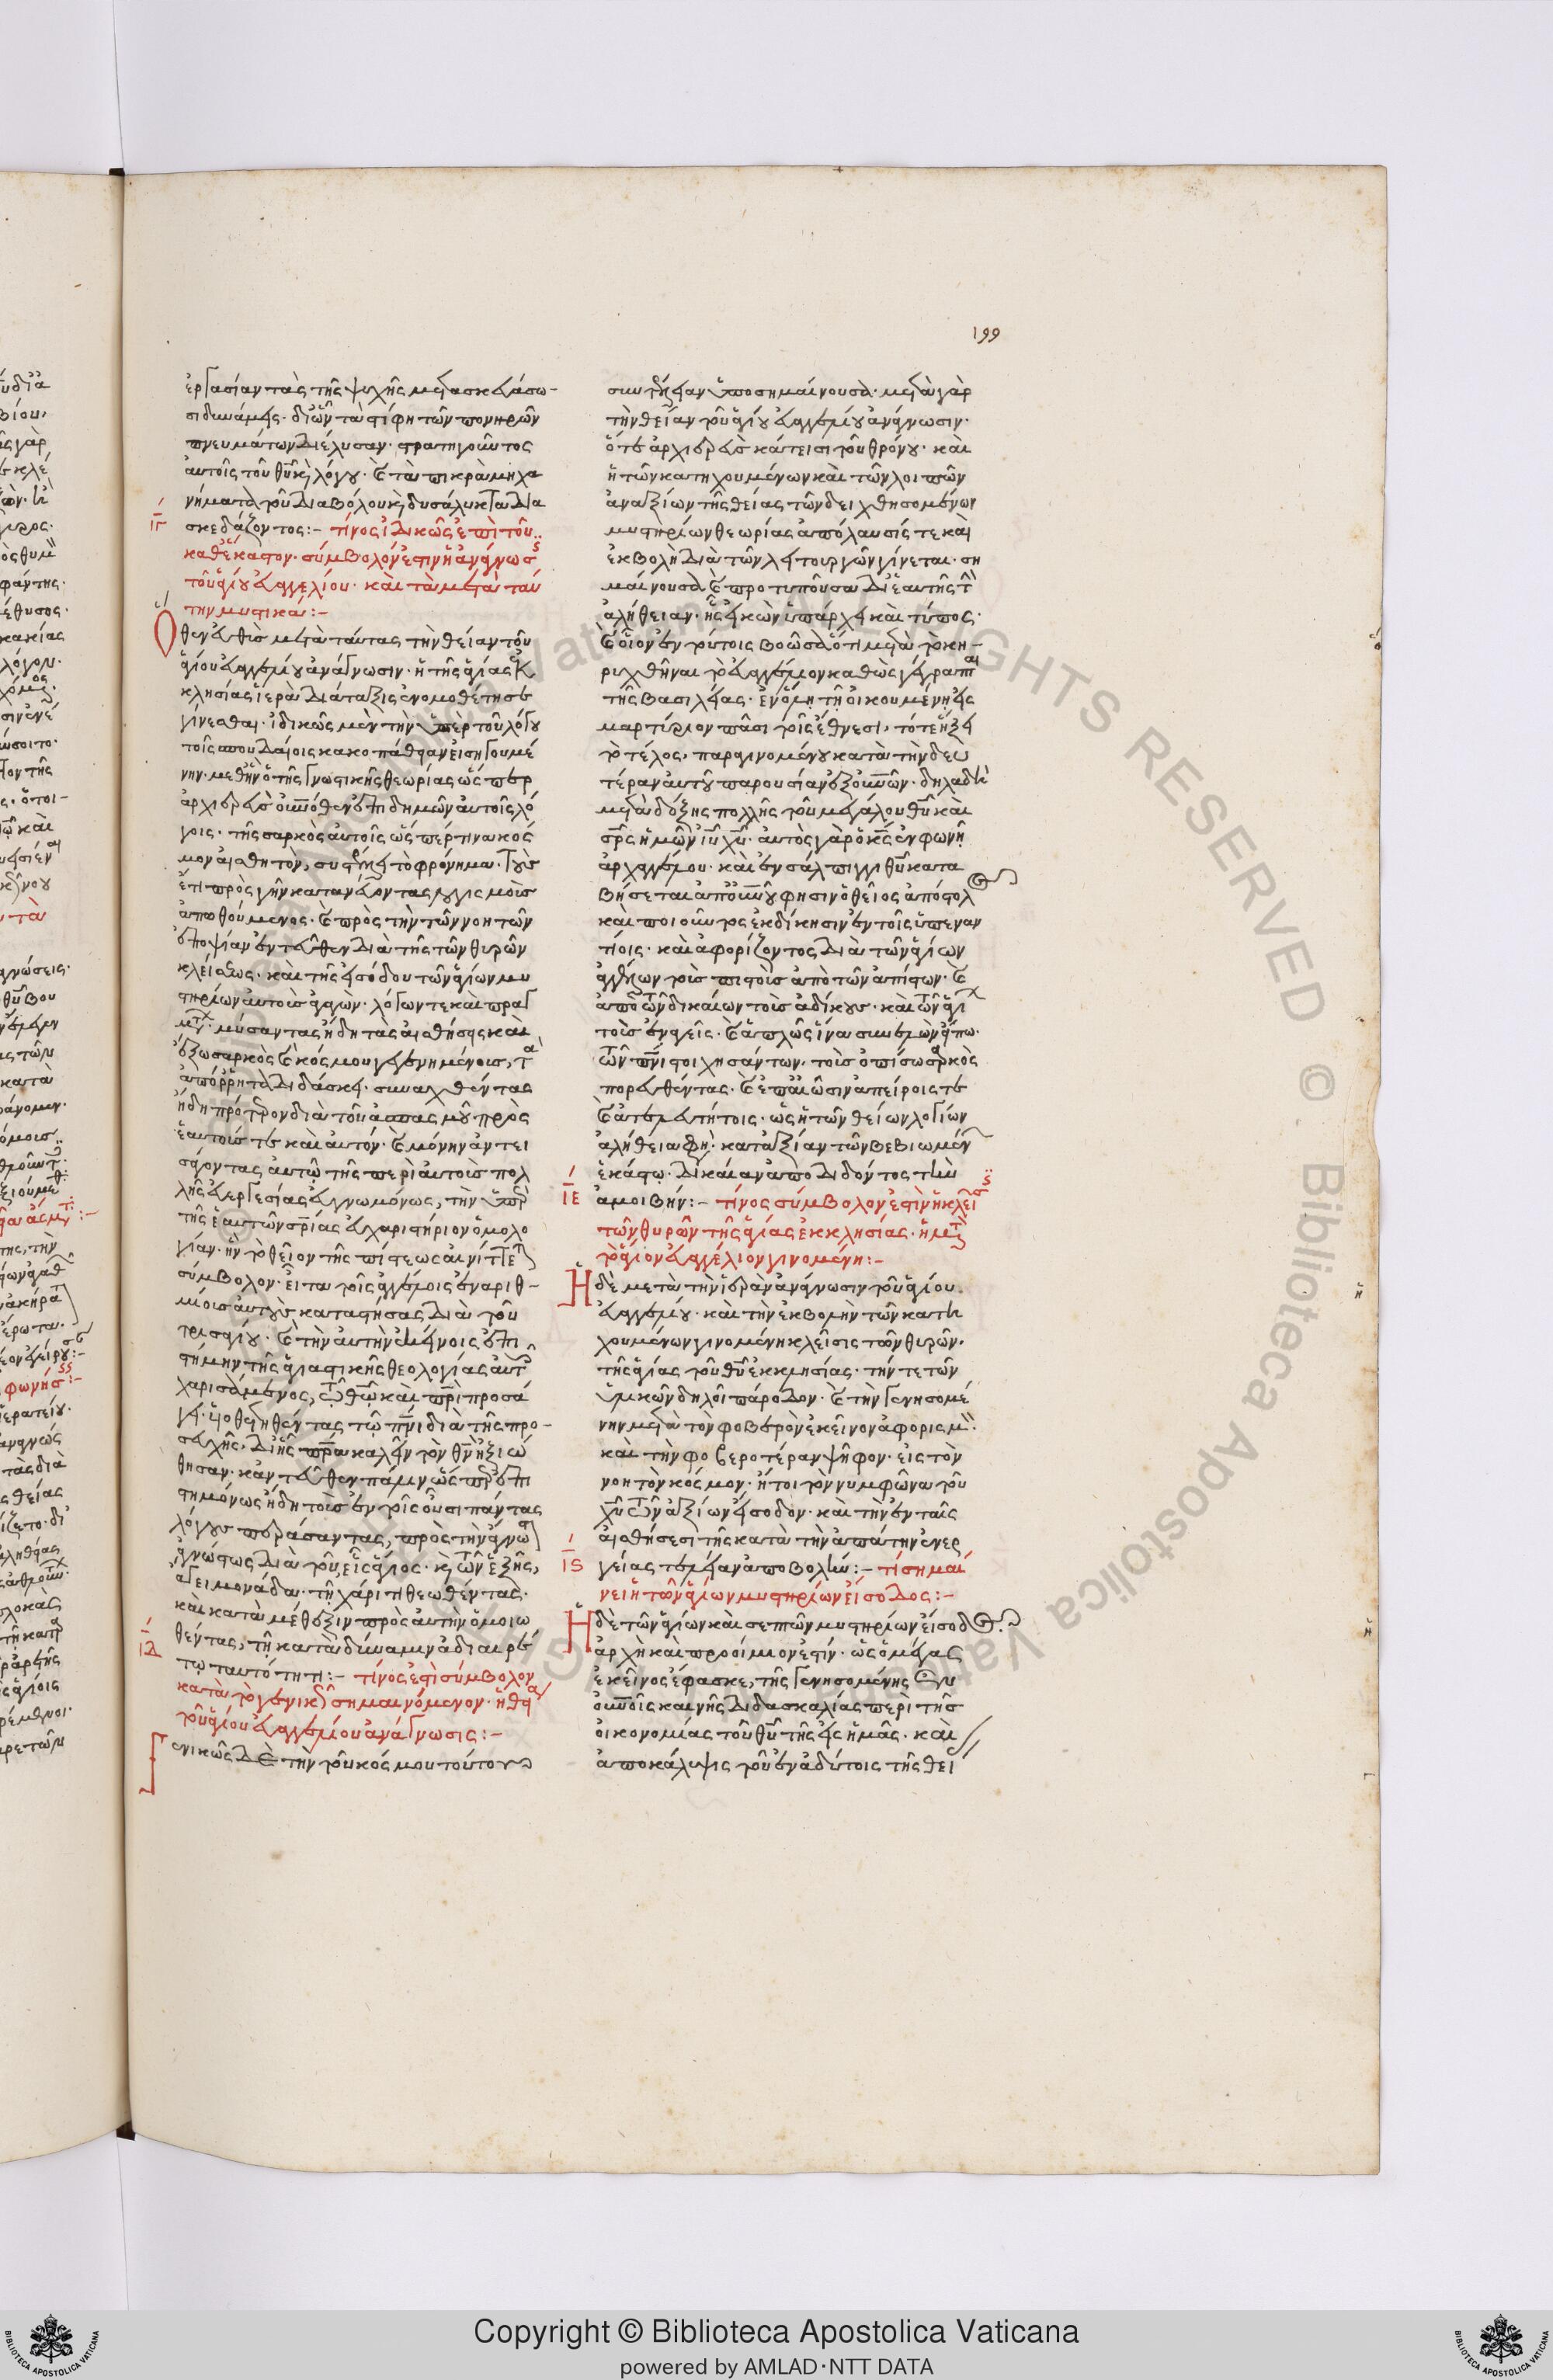 199
ἐργασίαν τὰς τῆς ψυχῆς μετασκευάσω-
σι δυνάμεις· δι' ὧν τὰ στίφη τῶν πονηρῶν
πνευμάτων διέλυσαν· στρατηγοῦντος
αὐτοῖς τοῦ θυ κ λόγου· καὶ τὰ πικρὰ μηχα
νήματα τοῦ διαβόλου κ δυσάλυκτα δια
ιγ σκεδάζοντος:- τίνος ἰδικῶς ἐπὶ τοῦ
καθέκαστον· σύμβολόν ἐστιν ἡ ἀνάγνωσ
τοῦ ἁγίου εὐαγγελίου· καὶ τὰ μετὰ ταύ
την μυστικά:-
Ὅθεν εὐθὺς μετὰ ταύτας τὴν θείαν τοῦ
ἁγίου εὐαγγελίου ἀνάγνωσιν· ἡ τῆς ἁγίας ἐκ
κλησίας ἱερὰ διάταξις ἐνομοθέτησε
γίνεσθαι· ἰδικῶς μὲν τὴν ὑπὲρ τοῦ λόγου
τοῖς σπουδαίοις κακοπάθειαν εἰσηγουμέ
νην· μεθ' ἣν ὁ τῆς γνωστικῆς θεωρίας ὥσπερ
ἀρχιερεὺς οὐνόθεν ἐπιδημῶν αὐτοῖς λό
γος· τῆς σαρκὸς αὐτοῖς ὥσπέρ τινα κόσ
μον αἰσθητὸν, συστέλλει τὸ φρόνημα· τοὺς
ἔτι πρὸς γῆν κατανεύοντας λογισμοὺς
ἀπωθούμενος· καὶ πρὸς τὴν τῶν νοητῶν
ἐποψίαν ἐντεῦθεν διὰ τῆς τῶν θυρῶν
κλείσεως· καὶ τῆς εἰσόδου τῶν ἁγίων μυ
στηρίων αὐτοὺς ἄγων· λόγων τε καὶ πραγ
μτ· μύσαντας ἤδη τὰς αἰσθήσεις καὶ
ἔξω σαρκὸς καὶ κόσμου γεγενημένους, τὰ
ἀπόρρητα διδάσκει· συναχθέντας
ἤδη πρότερον διὰ τοῦ ἀσπασμοῦ· πρὸς
ἑαυτούς τε καὶ αὐτόν· καὶ μόνην ἀντει
σάγοντας αὐτῷ τῆς περὶ αὐτοὺς πολ
λῆς εὐεργεσίας εὐγνωμόνως, τὴν ὑπὲρ
τῆς ἑαυτῶν σρίας εὐχαριστήριον ὁμολο
γίαν· ἣν τὸ θεῖον τῆς πίστεως αἰνίττετ
σύμβολον· εἶτα τοῖς ἀγγέλοις ἐναριθ-
μίους αὐτοὺς καταστήσας διὰ τοῦ
τρισαγίου· καὶ τὴν αὐτὴν ἐκείνοις ἐπι
στήμην τῆς ἁγιαστικῆς θεολογίας αὐτ
χαρισάμενος, τῷ θῷ καὶ πρὶ προσά
γει· υἱοθετηθέντας τῷ πνι διὰ τῆς προ-
σευχῆς, δι' ἧς πρα καλεῖν τὸν θν ἠξιώ
θησαν· κἀντεῦθεν πάλιν ὡς περ ἐπι
στημόνως ἤδη τοὺς ἐν τοῖς οὖσι πάντας
λόγους περάσαντας, πρὸς τὴν ἄγνω
ἀγνώστως διὰ τοῦ, εἷς ἅγιος· κ τῶν ἑξῆς,
ἄγει μονάδα· τῇ χάριτι θεωθέντας·
καὶ κατὰ μέθεξιν πρὸς αὐτὴν ὁμοιω
θέντας, τῇ κατὰ δύναμιν ἀδιαιρέ
ιδ τῳ ταυτότητι:- τίνος ἐστὶ σύμβολον
κατὰ τὸ γενικὸν σημαινόμενον· ἡ θεία
τοῦ ἁγίου εὐαγγελίου ἀνάγνωσις:-
Γενικῶς δὲ τὴν τοῦ κόσμου τούτου
συντέλειαν ὑποσημαίνουσα· μετὰ γὰρ
τὴν θείαν τοῦ ἁγίου εὐαγγελίου ἀνάγνωσιν·
ὅτε ἀρχιερεὺς κάτεισι τοῦ θρόνου· καὶ
ἡ τῶν κατηχουμένων καὶ τῶν λοιπῶν
ἀναξίων τῆς θείας τῶν δειχθησομένων
μυστηρίων θεωρίας ἀπόλαυσίς τε καὶ
ἐκβολὴ διὰ τῶν λειτουργῶν γίνεται· ση
μαίνουσα καὶ προτυποῦσα δι' ἑαυτῆς τ
ἀλήθειαν· ἧς εἰκὼν ὑπάρχει καὶ τύπος·
καὶ οἷον ἐν τούτοις βοῶσα ὅτι μετὰ τὸ κη-
ρυχθῆναι τὸ εὐαγγέλιον καθὼς γέγραπται
τῆς βασιλείας· ἐν ὅλῃ τῇ οἰκουμένῃ εἰς
μαρτύριον πᾶσι τοῖς ἔθνεσι, τότε ἥξει
τὸ τέλος· παραγινομένου κατὰ τὴν δευ
τέραν αὐτοῦ παρουσίαν ἐξ οὐνῶν· δηλαδὴ
μετὰ δόξης πολλῆς τοῦ μεγάλου θυ καὶ
σρς ἡμῶν ιυ χυ· αὐτὸς γὰρ ὁ κς ἐν φωνῇ
ἀρχαγγέλου· καὶ ἐν σάλπιγγι θυ κατα
βήσεται ἀπ' οὐνοῦ φησιν ὁ θεῖος ἀπόστολος
καὶ ποιοῦντος ἐκδίκησιν ἐν τοῖς ὑπεναν
τίοις· καὶ ἀφορίζοντος διὰ τῶν ἁγίων
ἀγγέλων τοὺς πιστοὺς ἀπὸ τῶν ἀπίστων· καὶ
ἀπὸ τῶν δικαίων τοὺς ἀδίκους· καὶ τῶν ἁγί
τοὺς ἐναγεῖς· καὶ ἁπλῶς ἵνα συνελὼν εἴπω·
τῶν πνι στοιχησάντων, τοὺς ὀπίσω σαρκὸς
πορευθέντας· καὶ ἐπ' αἰῶσιν ἀπείροις τε
καὶ ἀτελευτήτοις· ὡς ἡ τῶν θείων λογίων
ἀλήθεια φησὶ· κατ' ἀξίαν τῶν βεβιωμένων
ἑκάστῳ· δικαίαν ἀποδιδόντος τὴν
ιε ἀμοιβήν:- τίνος σύμβολον ἐστὶν ἡ κλεῖσις
τῶν θυρῶν τῆς ἁγίας ἐκκλησίας· ἡ μετὰ
τὸ ἅγιον εὐαγγέλιον γινομένη:-
Ἡ δὲ μετὰ τὴν ἱερὰν ἀνάγνωσιν τοῦ ἁγίου
εὐαγγελίου· καὶ τὴν ἐκβολὴν τῶν κατη
χουμένων γινομένη κλεῖσις τῶν θυρῶν·
τῆς ἁγίας τοῦ θυ ἐκκλησίας· τήν τε τῶν
ὑλικῶν δηλοῖ πάροδον· καὶ τὴν γενησομέ
νην μετὰ τὸν φοβερὸν ἐκεῖνον ἀφορισμὸν·
καὶ τὴν φοβεροτέραν ψῆφον· εἰς τὸν
νοητὸν κόσμον· ἤτοι τὸν νυμφῶνα τοῦ
χυ τῶν ἀξίων εἴσοδον· καὶ τὴν ἐν ταῖς
αἰσθήσεσι τῆς κατὰ τὴν ἀπάτην ἐνερ
ις γείας τελείαν ἀποβολήν:- τί σημαί
νει ἡ τῶν ἁγίων μυστηρίων εἴσοδος:-
Ἡ δὲ τῶν ἁγίων καὶ σεπτῶν μυστηρίων εἴσοδος·
ἀρχὴ καὶ προοίμιον ἐστίν· ὡς ὁ μέγας
ἐκεῖνος ἔφασκε, τῆς γενησομένης ἐν
οὐνοῖς καινῆς διδασκαλίας περὶ τῆς
οἰκονομίας τοῦ θυ τῆς εἰς ἡμᾶς· καὶ
ἀποκάλυψις τοῦ ἐν ἀδύτοις τῆς θεί
Copyright © Biblioteca Apostolica Vaticana
powered by AMLAD·NTT DATA